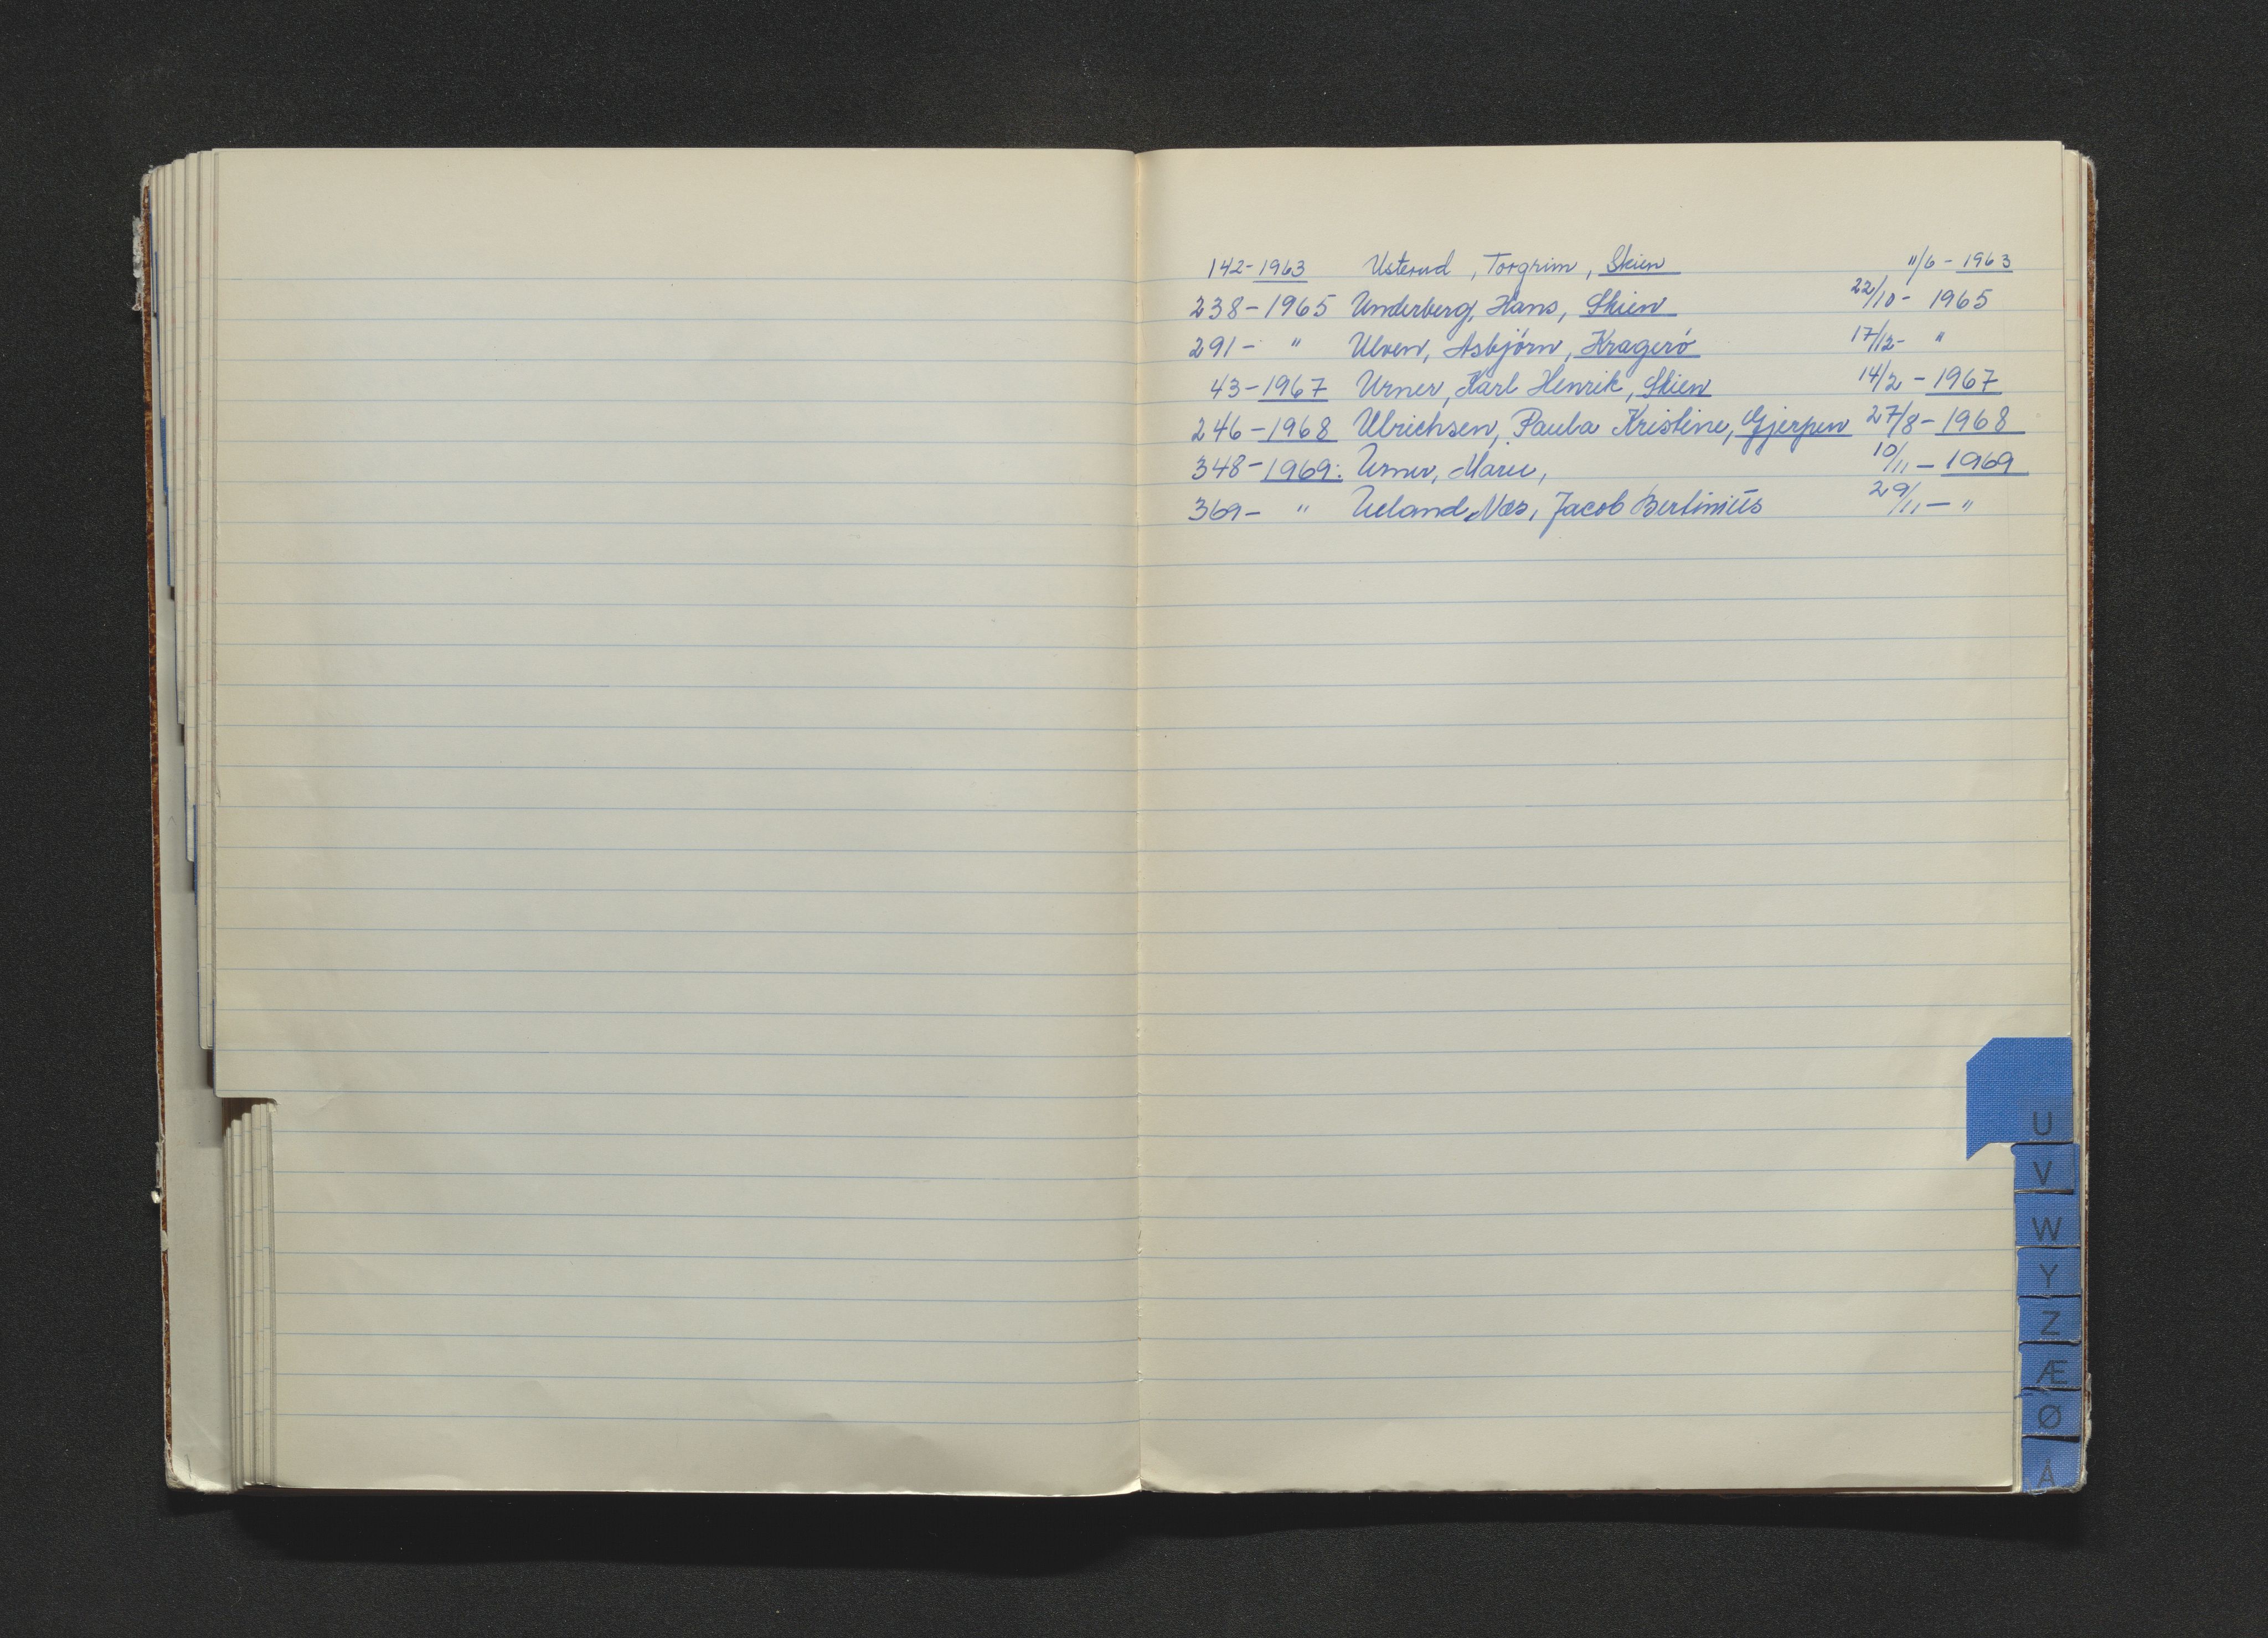 142-1963 Usterud, Torgrim, Skien 11/6 - 1963
238-1965 Underberg, Hans, Skien 22/10 - 1965
291- " Ulven, Asbjörn, Kragerö 17/12- "
43-1967 Urner, Karl Henrik, Skien 14/2 - 1967
246-1968 Ulrichsen, Paula Kristine, Gjerpen 27/8-1968
348-1969: Urner, Marie, 10/11 - 1969
369- " Ueland, Næs, Jacob Bertinius 29/11 - "
U
V
W
Y
Z
Æ
Ø
Å